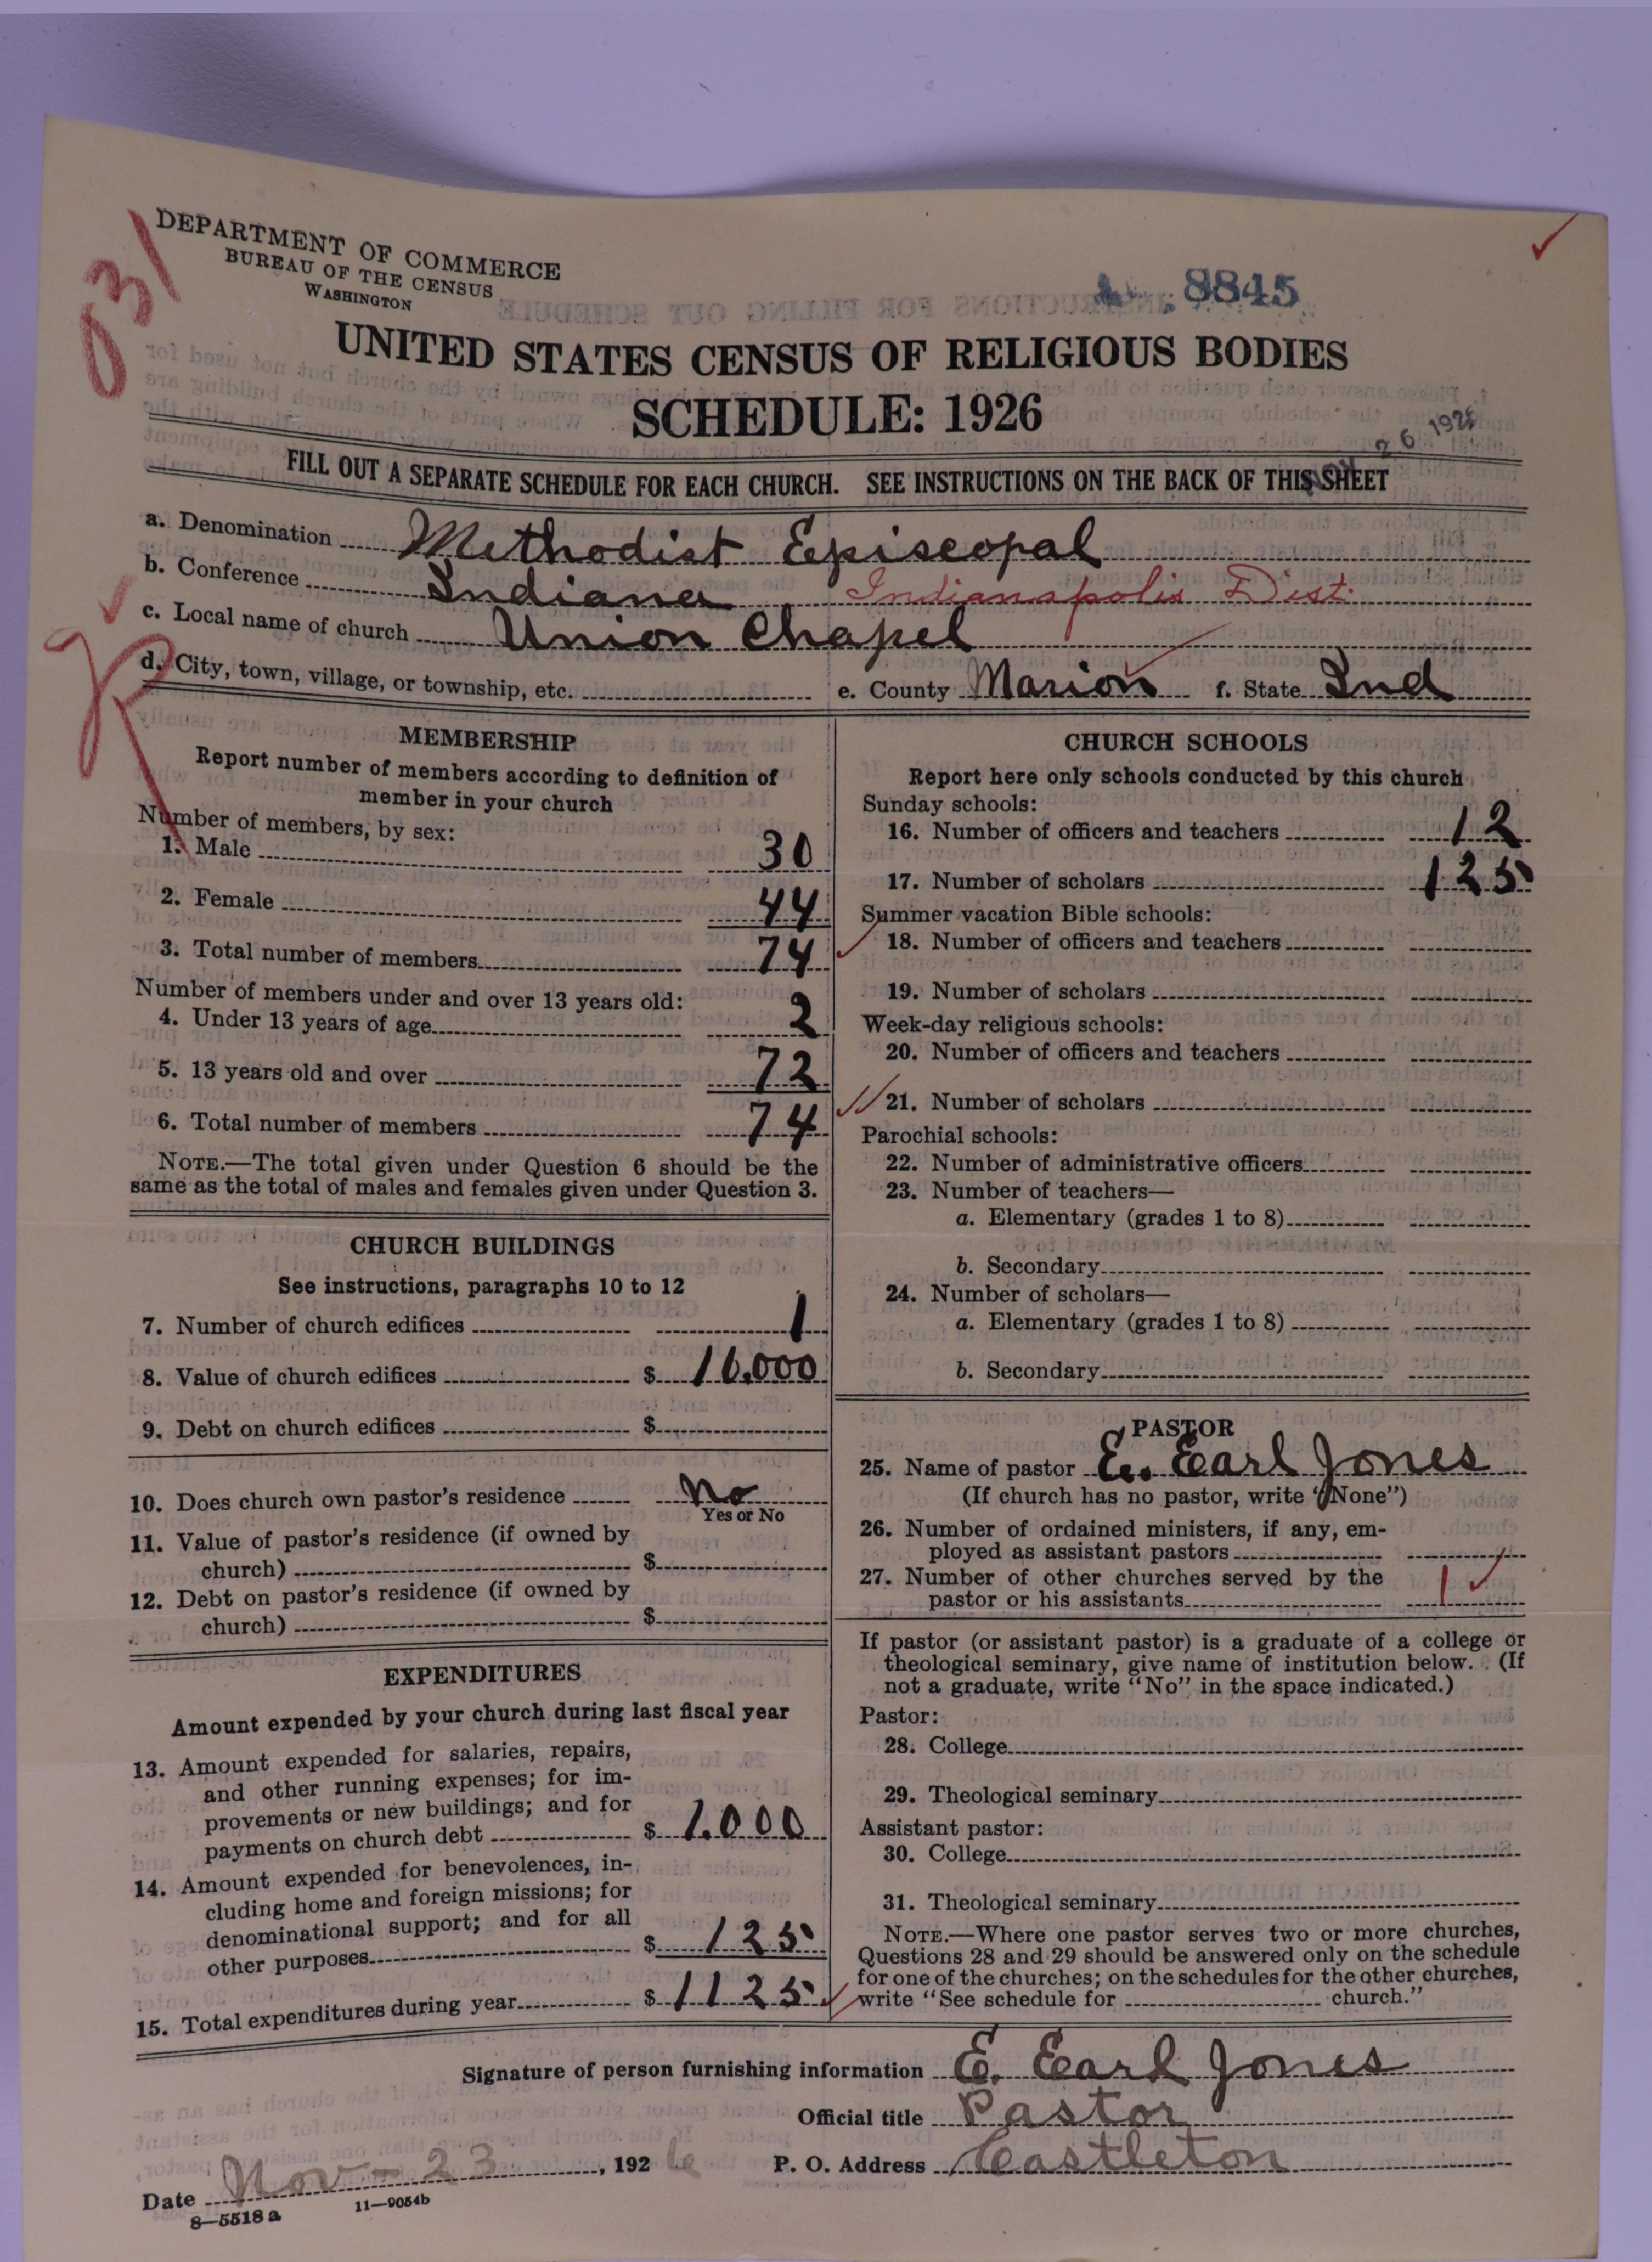 031
DEPARTMENT OF COMMERCE
BUREAU OF THE CENSUS
WASHINGTON
8845
UNITED STATES CENSUS OF RELIGIOUS BODIES
SCHEDULE: 1926
26 1926
FILL OUT A SEPARATE SCHEDULE FOR EACH CHURCH. SEE INSTRUCTIONS ON THE BACK OF THIS SHEET
a. Denomination Methodist Episcopal
b. Conference Indiana Indianapolis Dist.
c. Local name of church Union Chapel
d. City, town, village, or township, etc. e. County Marion f. State Ind
MEMBERSHIP
Report number of members according to definition of
member in your church
Number of members, by sex:
1. Male 30
2. Female 44
3. Total number of members 74
Number of members under and over 13 years old:
4. Under 13 years of age 2
5. 13 years old and over 72
6. Total number of members 74
NOTE.—The total given under Question 6 should be the
same as the total of males and females given under Question 3.
CHURCH BUILDINGS
See instructions, paragraphs 10 to 12
7. Number of church edifices 1
8. Value of church edifices $ 10,000
9. Debt on church edifices $
10. Does church own pastor's residence No
Yes or No
11. Value of pastor's residence (if owned by
church) $
12. Debt on pastor's residence (if owned by
church) $
EXPENDITURES
Amount expended by your church during last fiscal year
13. Amount expended for salaries, repairs,
and other running expenses; for im-
provements or new buildings; and for
payments on church debt $ 1,000
14. Amount expended for benevolences, in-
cluding home and foreign missions; for
denominational support; and for all
other purposes $ 125
15. Total expenditures during year $ 1125
CHURCH SCHOOLS
Report here only schools conducted by this church
Sunday schools:
16. Number of officers and teachers 12
17. Number of scholars 125
Summer vacation Bible schools:
18. Number of officers and teachers
19. Number of scholars
Week-day religious schools:
20. Number of officers and teachers
21. Number of scholars
Parochial schools:
22. Number of administrative officers
23. Number of teachers—
a. Elementary (grades 1 to 8)
b. Secondary
24. Number of scholars—
a. Elementary (grades 1 to 8)
b. Secondary
PASTOR
25. Name of pastor E. Earl Jones
(If church has no pastor, write "None")
26. Number of ordained ministers, if any, em-
ployed as assistant pastors
27. Number of other churches served by the
pastor or his assistants 1
If pastor (or assistant pastor) is a graduate of a college or
theological seminary, give name of institution below. (If
not a graduate, write "No" in the space indicated.)
Pastor:
28. College
29. Theological seminary
Assistant pastor:
30. College
31. Theological seminary
NOTE.—Where one pastor serves two or more churches,
Questions 28 and 29 should be answered only on the schedule
for one of the churches; on the schedules for the other churches,
write "See schedule for church."
Signature of person furnishing information E. Earl Jones
Official title Pastor
Date Nov - 23, 1926 P. O. Address Castleton
8—5518 a 11—9054b